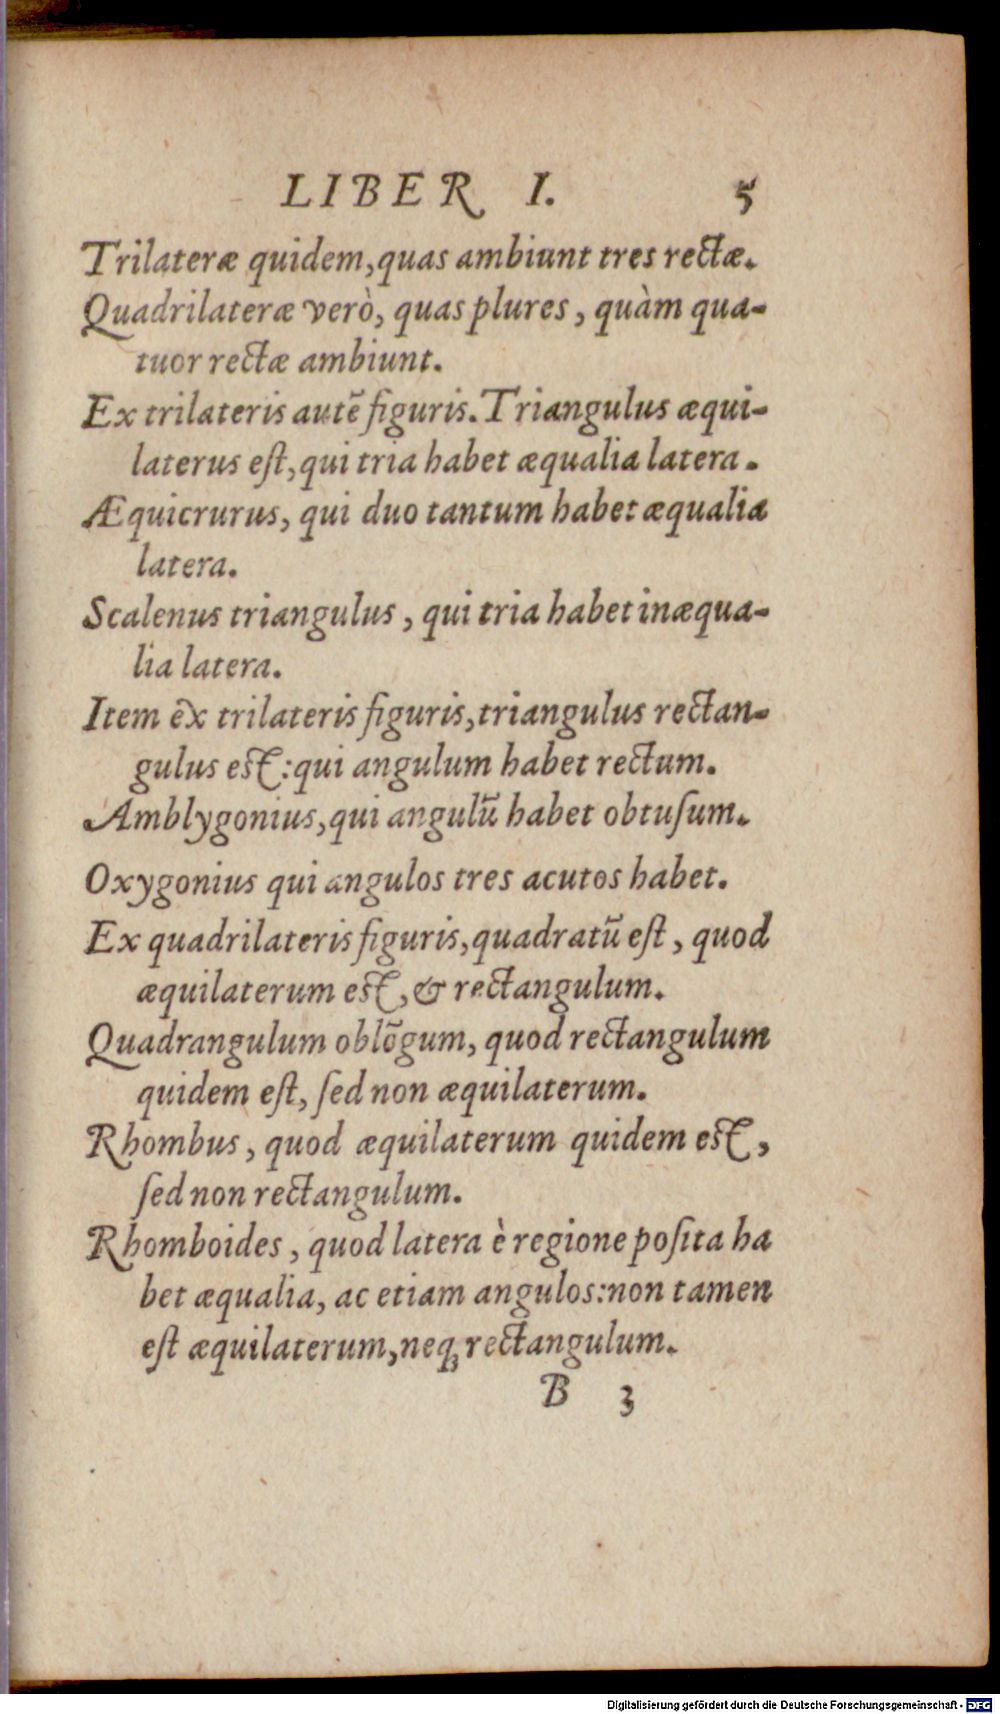 LIBER I. 5
Trilateræ quidem, quas ambiunt tres rectæ.
Quadrilateræ verò, quas plures, quàm qua-
tuor rectæ ambiunt.
Ex trilateris autē figuris. Triangulus æqui-
laterus eſt, qui tria habet æqualia latera.
Æquicrurus, qui duo tantum habet æqualia
latera.
Scalenus triangulus, qui tria habet inæqua-
lia latera.
Item ēx trilateris figuris, triangulus rectan-
gulus est: qui angulum habet rectum.
Amblygonius, qui angulū habet obtuſum.
Oxygonius qui angulos tres acutos habet.
Ex quadrilateris figuris, quadratū eſt, quod
æquilaterum est, & rectangulum.
Quadrangulum oblōgum, quod rectangulum
quidem eſt, ſed non æquilaterum.
Rhombus, quod æquilaterum quidem est,
ſed non rectangulum.
Rhomboides, quod latera è regione poſita ha
bet æqualia, ac etiam angulos: non tamen
eſt æquilaterum, neqꝫ rectangulum.
B 3
Digitalisierung gefördert durch die Deutsche Forschungsgemeinschaft - DFG